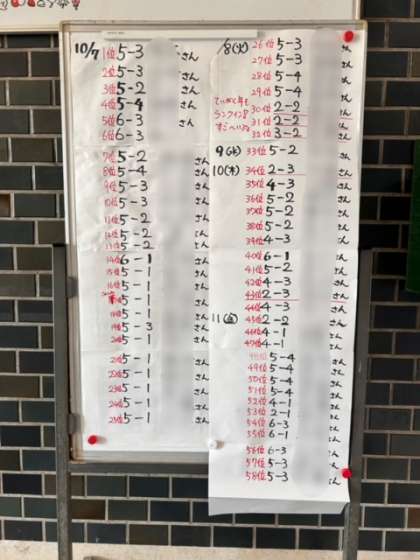 10/7 1位 5-3 さん
2位 5-3 さん
3位 5-2 さん
4位 5-4 さん
5位 6-3 さん
6位 6-3
7位 5-2 さん
8位 5-4 さん
9位 5-3 さん
10位 5-3 さん
11位 5-2 さん
12位 5-2 さん
13位 5-2 さん
14位 6-1 さん
15位 5-1 さん
16位 5-1 さん
5-1 さん
18位 5-1 さん
19位 5-3 さん
20位 5-1 さん
21位 5-1 さん
22位 5-1 さん
23位 5-1 さん
24位 5-1 さん
25位 5-1 さん
8(火) 26位 5-3 さん
27位 5-3 さん
28位 5-4 さん
29位 5-4 さん
30位 2-2 さん
ランクイン
31位 2-2 さん
すごい
32位 3-2 さん
9(水) 33位 5-2 さん
10(木) 34位 2-3 さん
35位 4-3 さん
36位 5-2 さん
37位 5-2 さん
38位 5-2 さん
39位 4-3 さん
40位 6-1 さん
41位 5-2 さん
42位 4-3 さん
43位 2-3 さん
44位 4-3 さん
11(金) 45位 2-2 さん
46位 4-1 さん
47位 4-1 さん
48位 5-4 さん
49位 5-4 さん
50位 5-4 さん
51位 5-4 さん
52位 4-1 さん
53位 2-1 さん
54位 6-3 さん
55位 6-1 さん
56位 6-3 さん
57位 5-3 さん
58位 5-3 さん